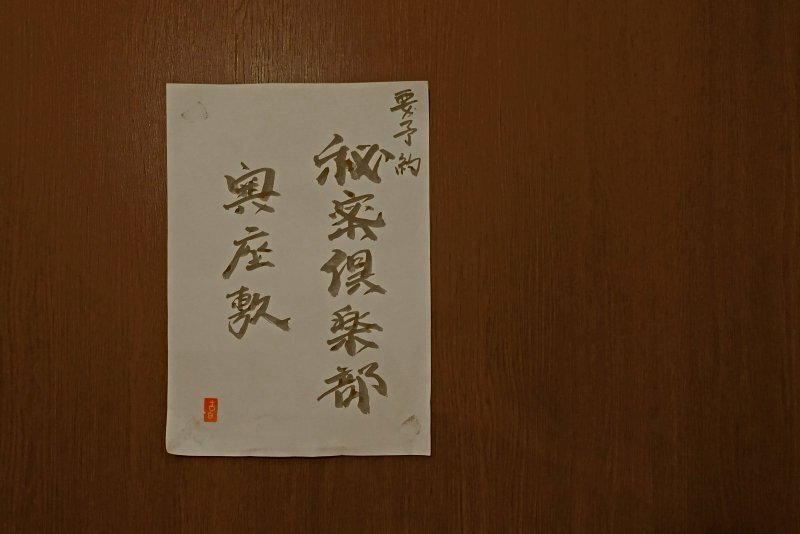 要予約
秘密倶楽部
奥座敷